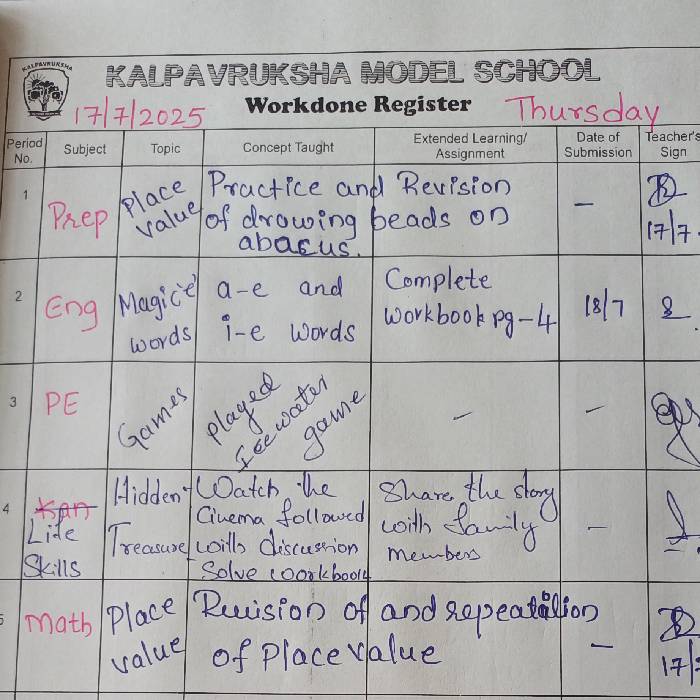 KALPAVRUKSHA
KALPAVRUKSHA MODEL SCHOOL
17/7/2025 Workdone Register Thursday
Period No. Subject Topic Concept Taught Extended Learning/ Assignment Date of Submission Teacher's Sign
1 Prep Place value Practice and Revision
of drawing beads on
abacus. – 17/7.
2 Eng Magic 'e' words a-e and
i-e words Complete
workbook pg-4 18/7
3 PE Games Played
Ice water
game – –
4 Kan
Life
Skills Hidden
Treasure Watch the
Cinema followed
with discussion
Solve workbook Share the story
with family
members –
5 Math Place
value Revision of and repeatation
of Place value – 17/7